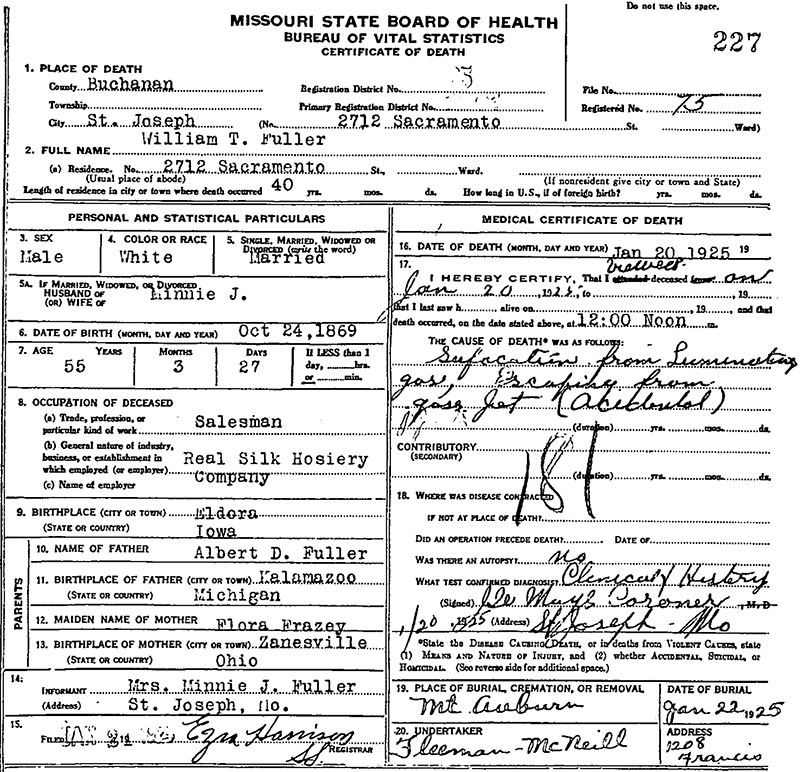 MISSOURI STATE BOARD OF HEALTH
BUREAU OF VITAL STATISTICS
CERTIFICATE OF DEATH
Do not use this space.
227
1. PLACE OF DEATH
County Buchanan Registration District No. File No.
Township Primary Registration District No. Registered No. 75
City St. Joseph (No. 2712 Sacramento St., Ward)
William T. Fuller
2. FULL NAME
(a) Residence. No. 2712 Sacramento St., Ward.
(Usual place of abode) (If nonresident give city or town and State)
Length of residence in city or town where death occurred 40 yrs. mos. ds. How long in U.S., if of foreign birth? yrs. mos. ds.
PERSONAL AND STATISTICAL PARTICULARS
3. SEX 4. COLOR OR RACE 5. SINGLE, MARRIED, WIDOWED OR
DIVORCED (write the word)
Male White Married
5A. IF MARRIED, WIDOWED, OR DIVORCED
HUSBAND OF
(OR) WIFE OF Minnie J.
6. DATE OF BIRTH (MONTH, DAY AND YEAR) Oct 24,1869
7. AGE YEARS MONTHS DAYS If LESS than 1
day, hrs.
or min.
55 3 27
8. OCCUPATION OF DECEASED
(a) Trade, profession, or
particular kind of work Salesman
(b) General nature of industry,
business, or establishment in
which employed (or employer) Real Silk Hosiery
Company
(c) Name of employer
9. BIRTHPLACE (CITY OR TOWN) Eldora
(STATE OR COUNTRY) Iowa
PARENTS
10. NAME OF FATHER Albert D. Fuller
11. BIRTHPLACE OF FATHER (CITY OR TOWN) Kalamazoo
(STATE OR COUNTRY) Michigan
12. MAIDEN NAME OF MOTHER Flora Frazey
13. BIRTHPLACE OF MOTHER (CITY OR TOWN) Zanesville
(STATE OR COUNTRY) Ohio
14.
INFORMANT Mrs. Minnie J. Fuller
(Address) St. Joseph, Mo.
15.
FILED Ezra Harrison
REGISTRAR
MEDICAL CERTIFICATE OF DEATH
16. DATE OF DEATH (MONTH, DAY AND YEAR) Jan 20 1925 19
17.
viewed
I HEREBY CERTIFY, That I attended deceased from on
Jan 20, 1925, to , 19
that I last saw h alive on , 19 , and that
death occurred, on the date stated above, at 12:00 Noon m.
THE CAUSE OF DEATH* WAS AS FOLLOWS:
Sufocation from Luminating
gas, Escaping from
gas Jet (Acidental)
(duration) yrs. mos. ds.
CONTRIBUTORY
(SECONDARY)
181
(duration) yrs. mos. ds.
18. WHERE WAS DISEASE CONTRACTED
IF NOT AT PLACE OF DEATH?
DID AN OPERATION PRECEDE DEATH? DATE OF
WAS THERE AN AUTOPSY? no
WHAT TEST CONFIRMED DIAGNOSIS? Clinical History
(Signed) Coroner, M. D
1/20, 1925 (Address) St Joseph - Mo
*State the DISEASE CAUSING DEATH, or in deaths from VIOLENT CAUSES, state
(1) MEANS AND NATURE OF INJURY, and (2) whether ACCIDENTAL, SUICIDAL, or
HOMICIDAL. (See reverse side for additional space.)
19. PLACE OF BURIAL, CREMATION, OR REMOVAL DATE OF BURIAL
Mt Auburn Jan 22 1925
20. UNDERTAKER ADDRESS
Fleeman-McNeill 1208
Francis